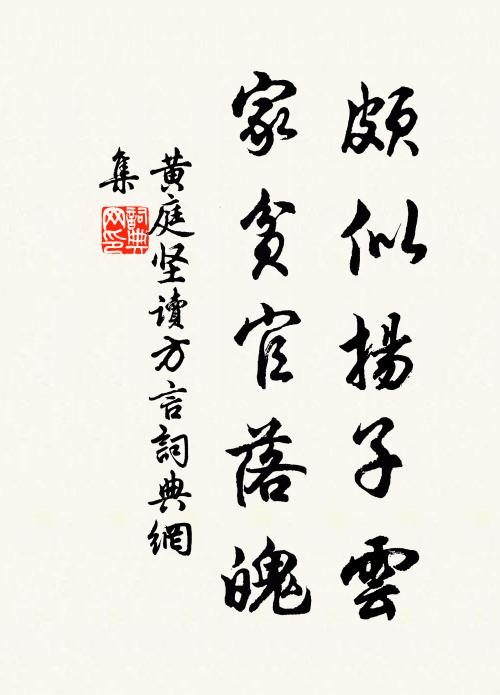 頗似揚子雲
家貧官落魄
黄庭坚讀方言詞典網
集
詞典網印